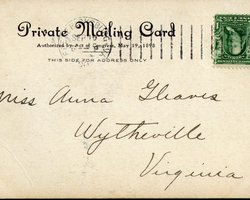 Private Mailing Card
Authorized by Act of Congress, May 19, 1898
THIS SIDE FOR ADDRESS ONLY
Miss Anna Gleaves
Wytheville
Virginia